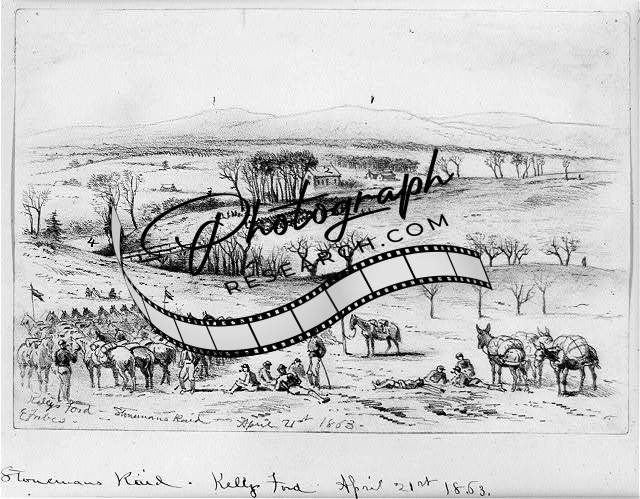 2
4
Photograph
RESEARCH.COM
Kellys Ford
EForbes
Stonemans Raid - April 21st 1863.
Stonemans Raid. Kellys Ford. April 21st 1863.